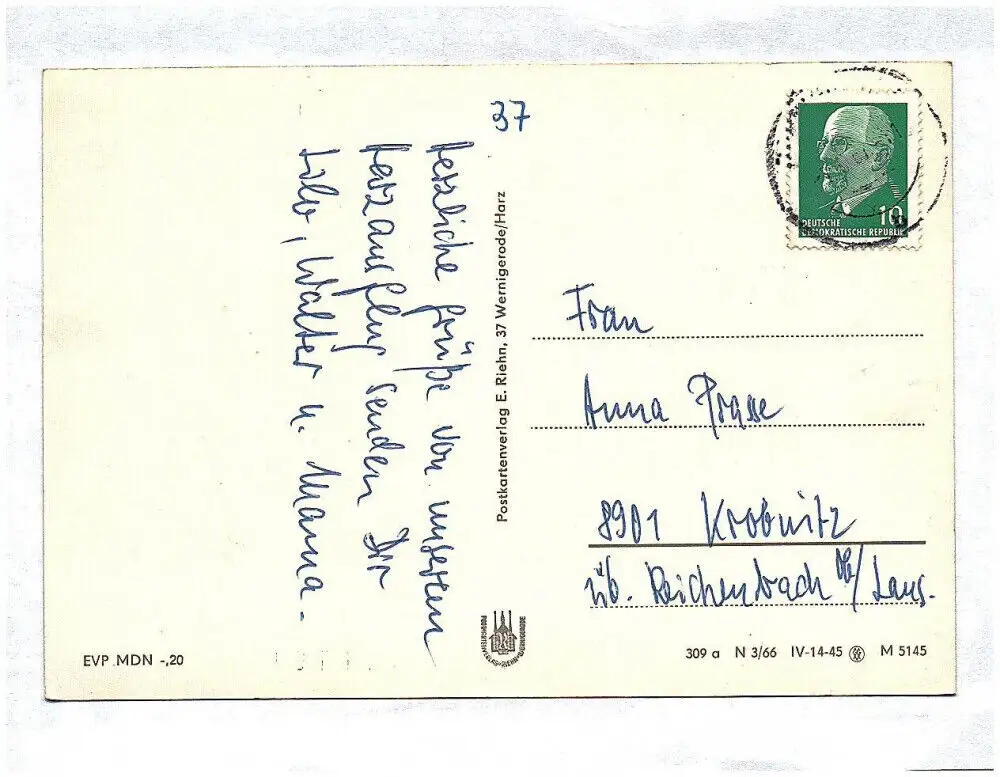 37
Herzliche Grüße von unserem
Harzausflug senden Dir
Walter u. Mama.
Postkartenverlag E. Riehn, 37 Wernigerode/Harz
10
DEUTSCHE
DEMOKRATISCHE REPUBLIK
Frau
Anna Prasse
8901 Krobnitz
üb. Reichenbach Ob/Laus.
EVP MDN -,20
309 a N 3/66 IV-14-45 M 5145